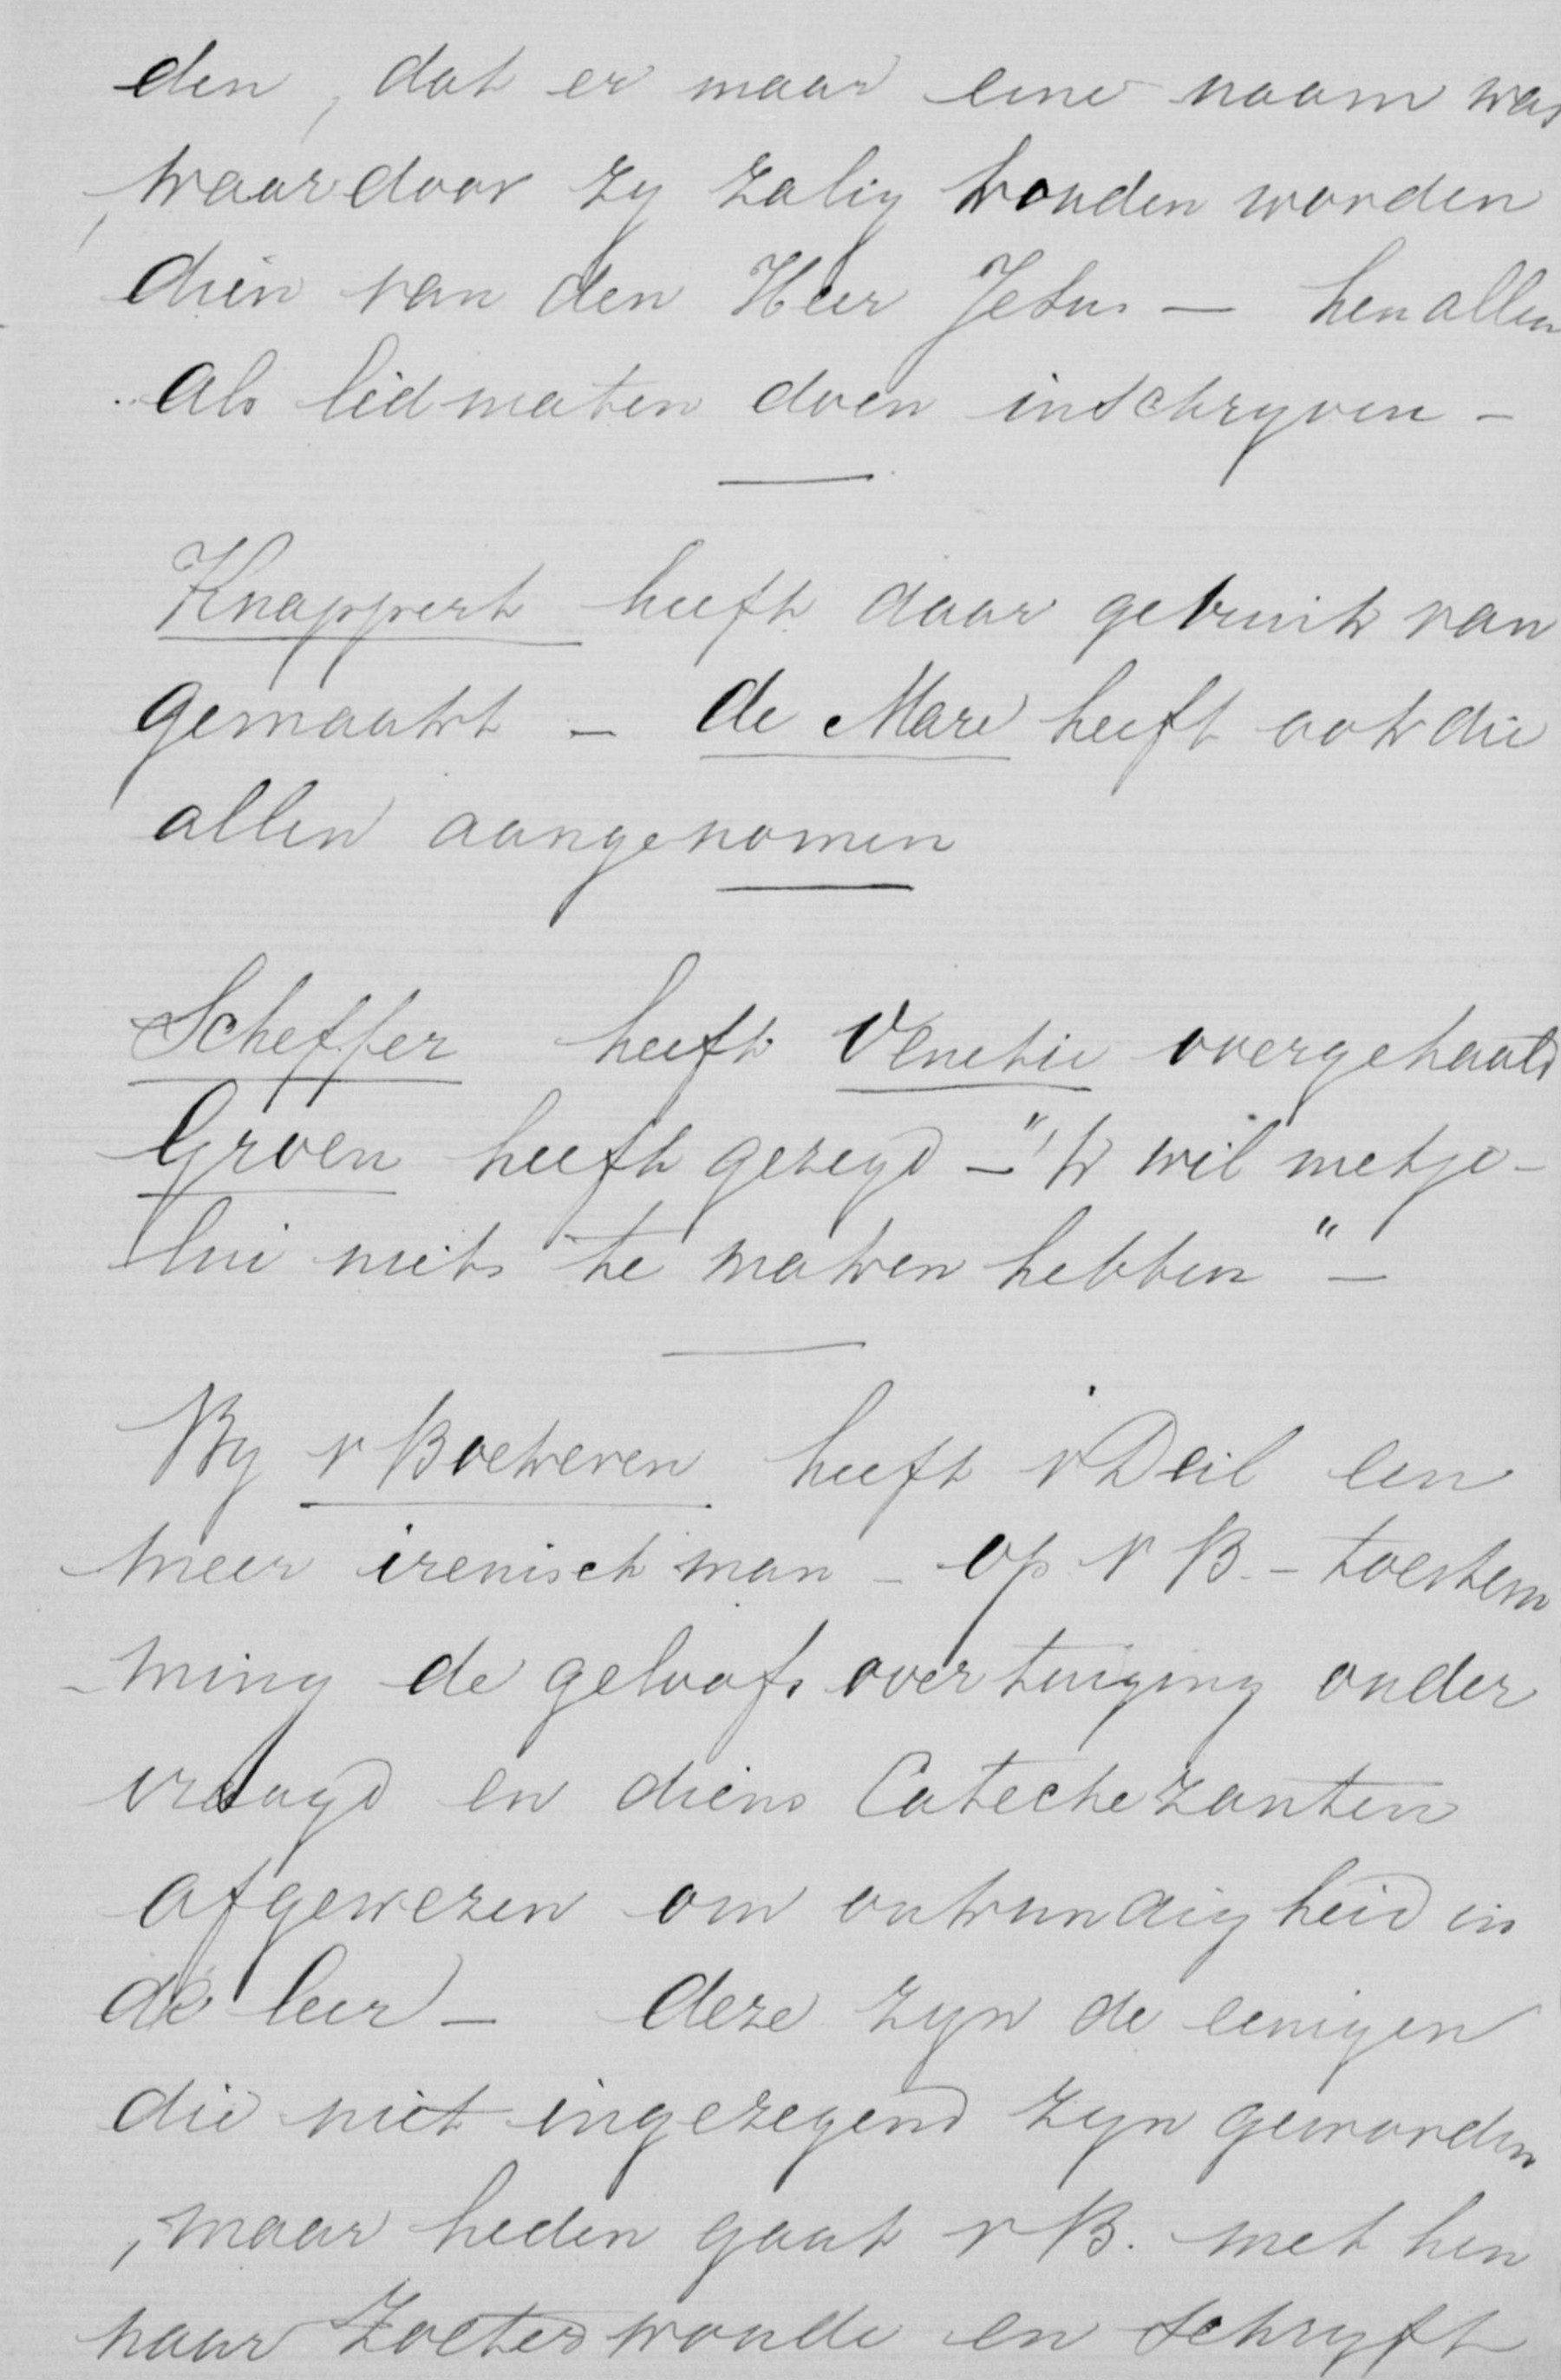 den, dat er maar eene naam was
, waardoor zy zalig konden worden
dien van den Heer Jesus — hen allen
als lidmaten doen inschryven –
Knappert heeft daar gebruik van
gemaakt – de Mare heeft ook die
allen aangenomen
Scheffer heeft Venetie overgehaald
Groen heeft gezegd – "'k wil met je-
lui niets te maken hebben" –
By v Boekeren heeft v Deil een
meer irenisch man – op v B. – toestem
-ming de geloofsovertuiging onder
vraagd en diens Catechezanten
afgewezen om onkundigheid in
de leer – deze zyn de eenigen
die niet ingezegend zyn geworden
, maar heden gaat v B. met hen
naar Zoeterwoude en schryft